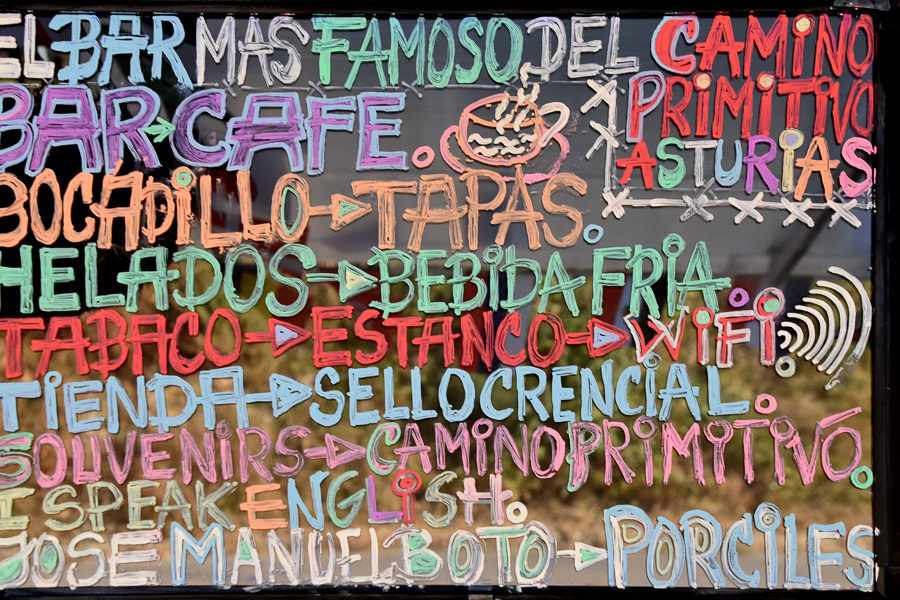 EL BAR MAS FAMOSO DEL CAMINO
BAR → CAFE. PRIMITIVO
ASTURIAS
BOCÁDILLO → TAPAS
HELADOS → BEBIDA FRIA
TABACO → ESTANCO → WiFi
TIENDA → SELLO CRENCIAL.
SOUVENIRS → CAMINO PRIMITIVÓ
I SPEAK ENGLISH.
JOSE MANUEL BOTO → PORCILES